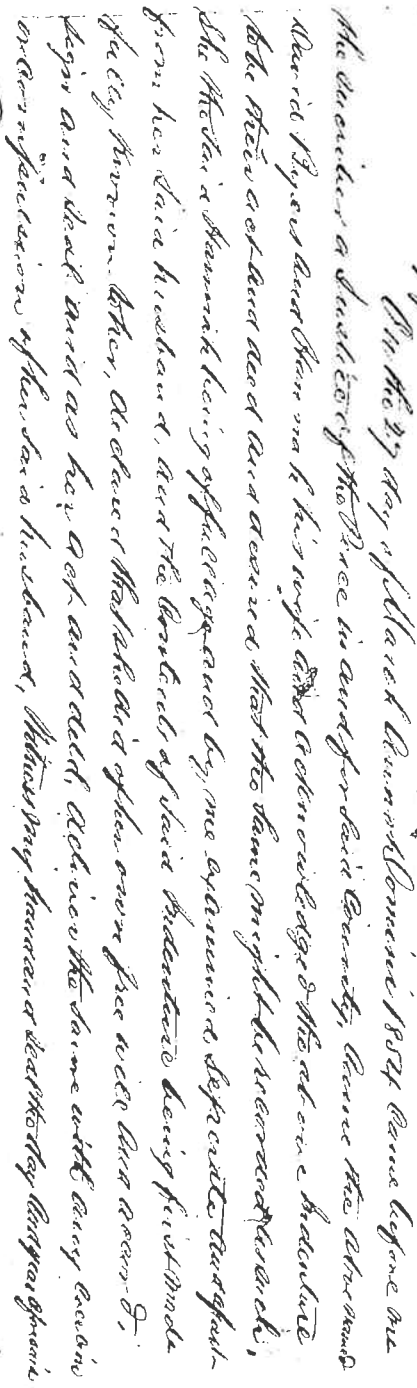 On the 27 day of March Anno Domini 1854 Came before me
the Subscriber a Justice of the Peace in and for said County, Came the above named
David Byers and Hannah his wife and acknowledged the above Indenture
to be their act and deed and desired that the same might be recorded as such,
She the said Hannah being of full age and by me examined, Seperate and apart
from her said husband, and the Contents of said Indenture being first made
fully known to her, declared that she did of her own free will and accord,
sign and seal and as her act and deed, deliver the same without any
or Compulsion of her said husband, Witness my hand and seal the day and year aforesaid